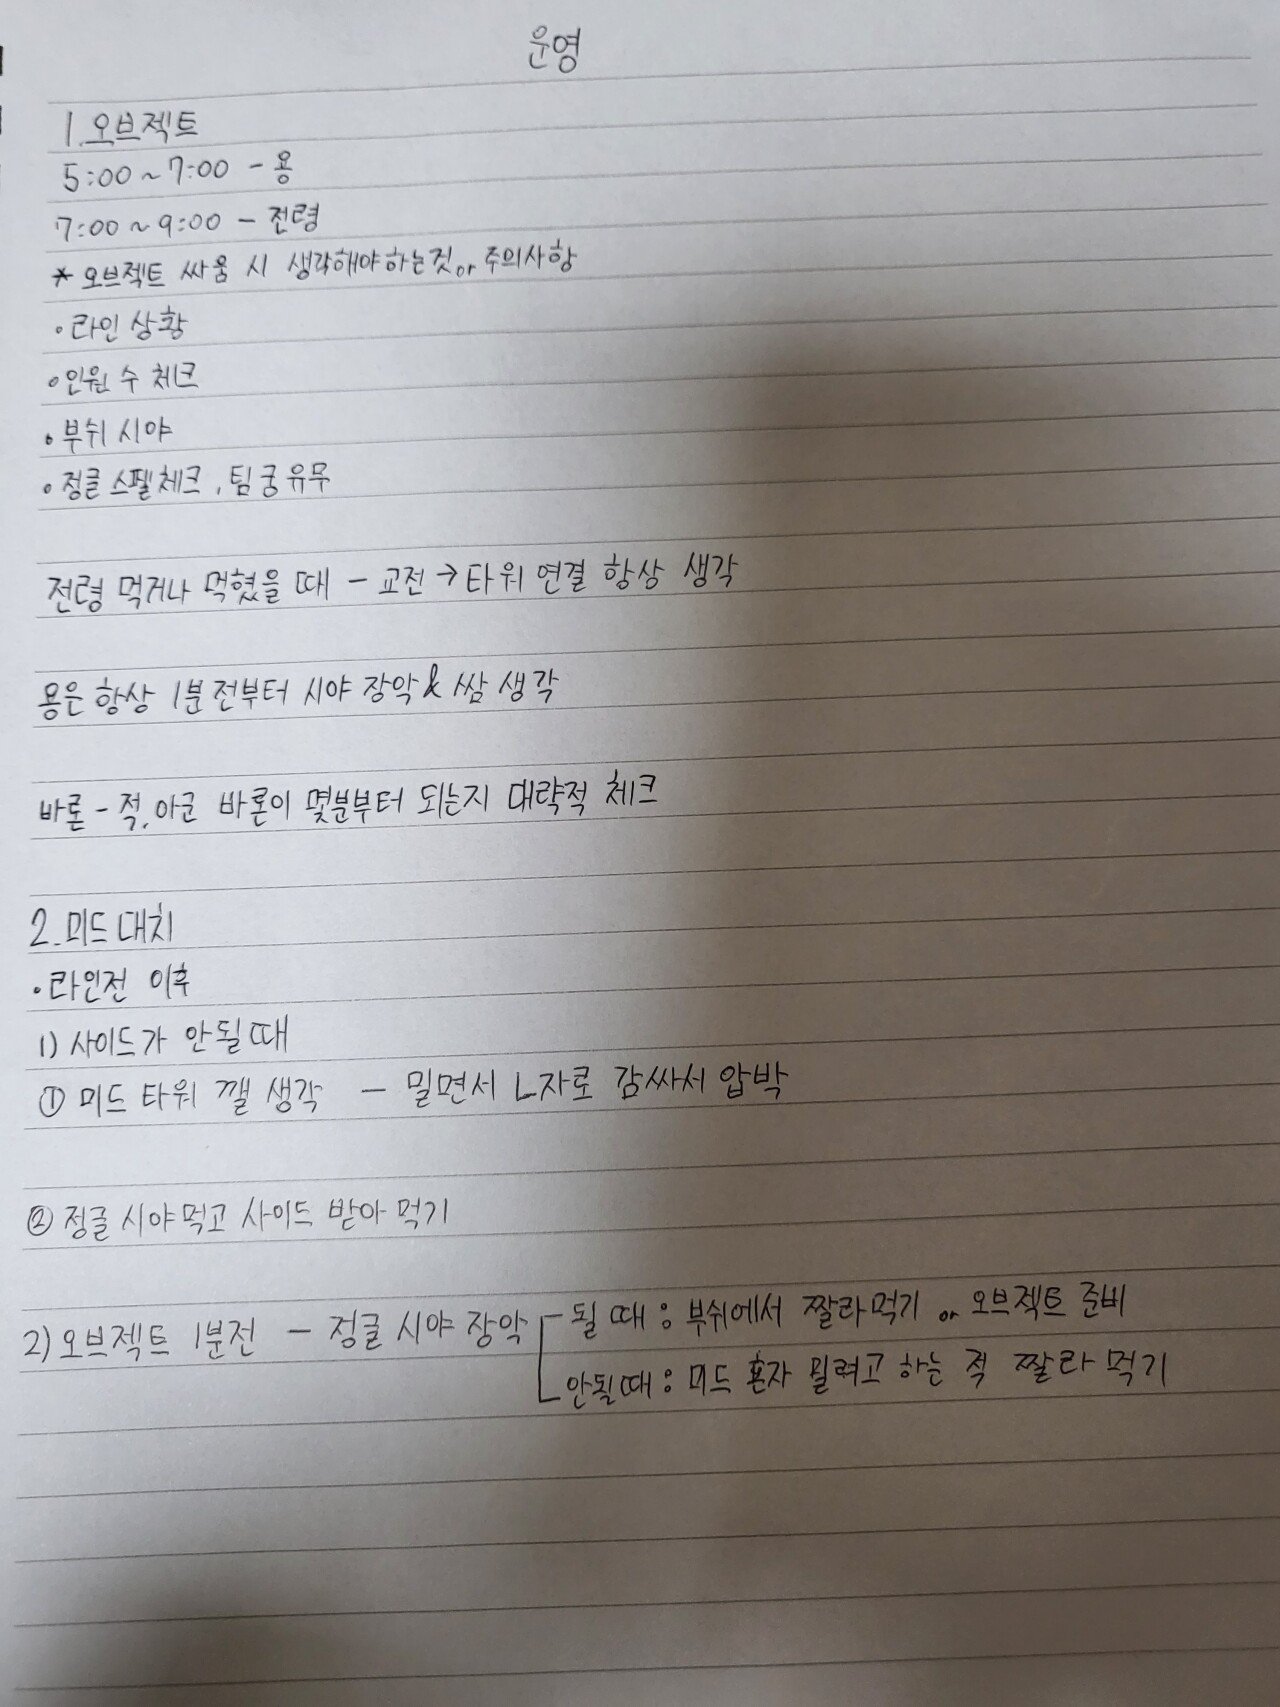 운영
1. 오브젝트
5:00 ~ 7:00 - 용
7:00 ~ 9:00 - 전령
* 오브젝트 싸움 시 생각해야하는것 or 주의사항
• 라인 상황
• 인원 수 체크
• 부쉬 시야
• 정글 스펠체크, 팀 궁 유무
전령 먹거나 먹혔을 때 - 교전 → 타워 연결 항상 생각
용은 항상 1분전부터 시야 장악 & 쌈 생각
바론 - 적, 아군 바론이 몇분부터 되는지 대략적 체크
2. 미드 대치
• 라인전 이후
1) 사이드가 안될때
① 미드 타워 깰 생각 - 밀면서 ㄴ자로 감싸서 압박
② 정글 시야먹고 사이드 받아 먹기
2) 오브젝트 1분전 - 정글 시야 장악 - 될 때 : 부쉬에서 짤라먹기 or 오브젝트 준비
안될때 : 미드 혼자 밀려고 하는 적 짤라 먹기